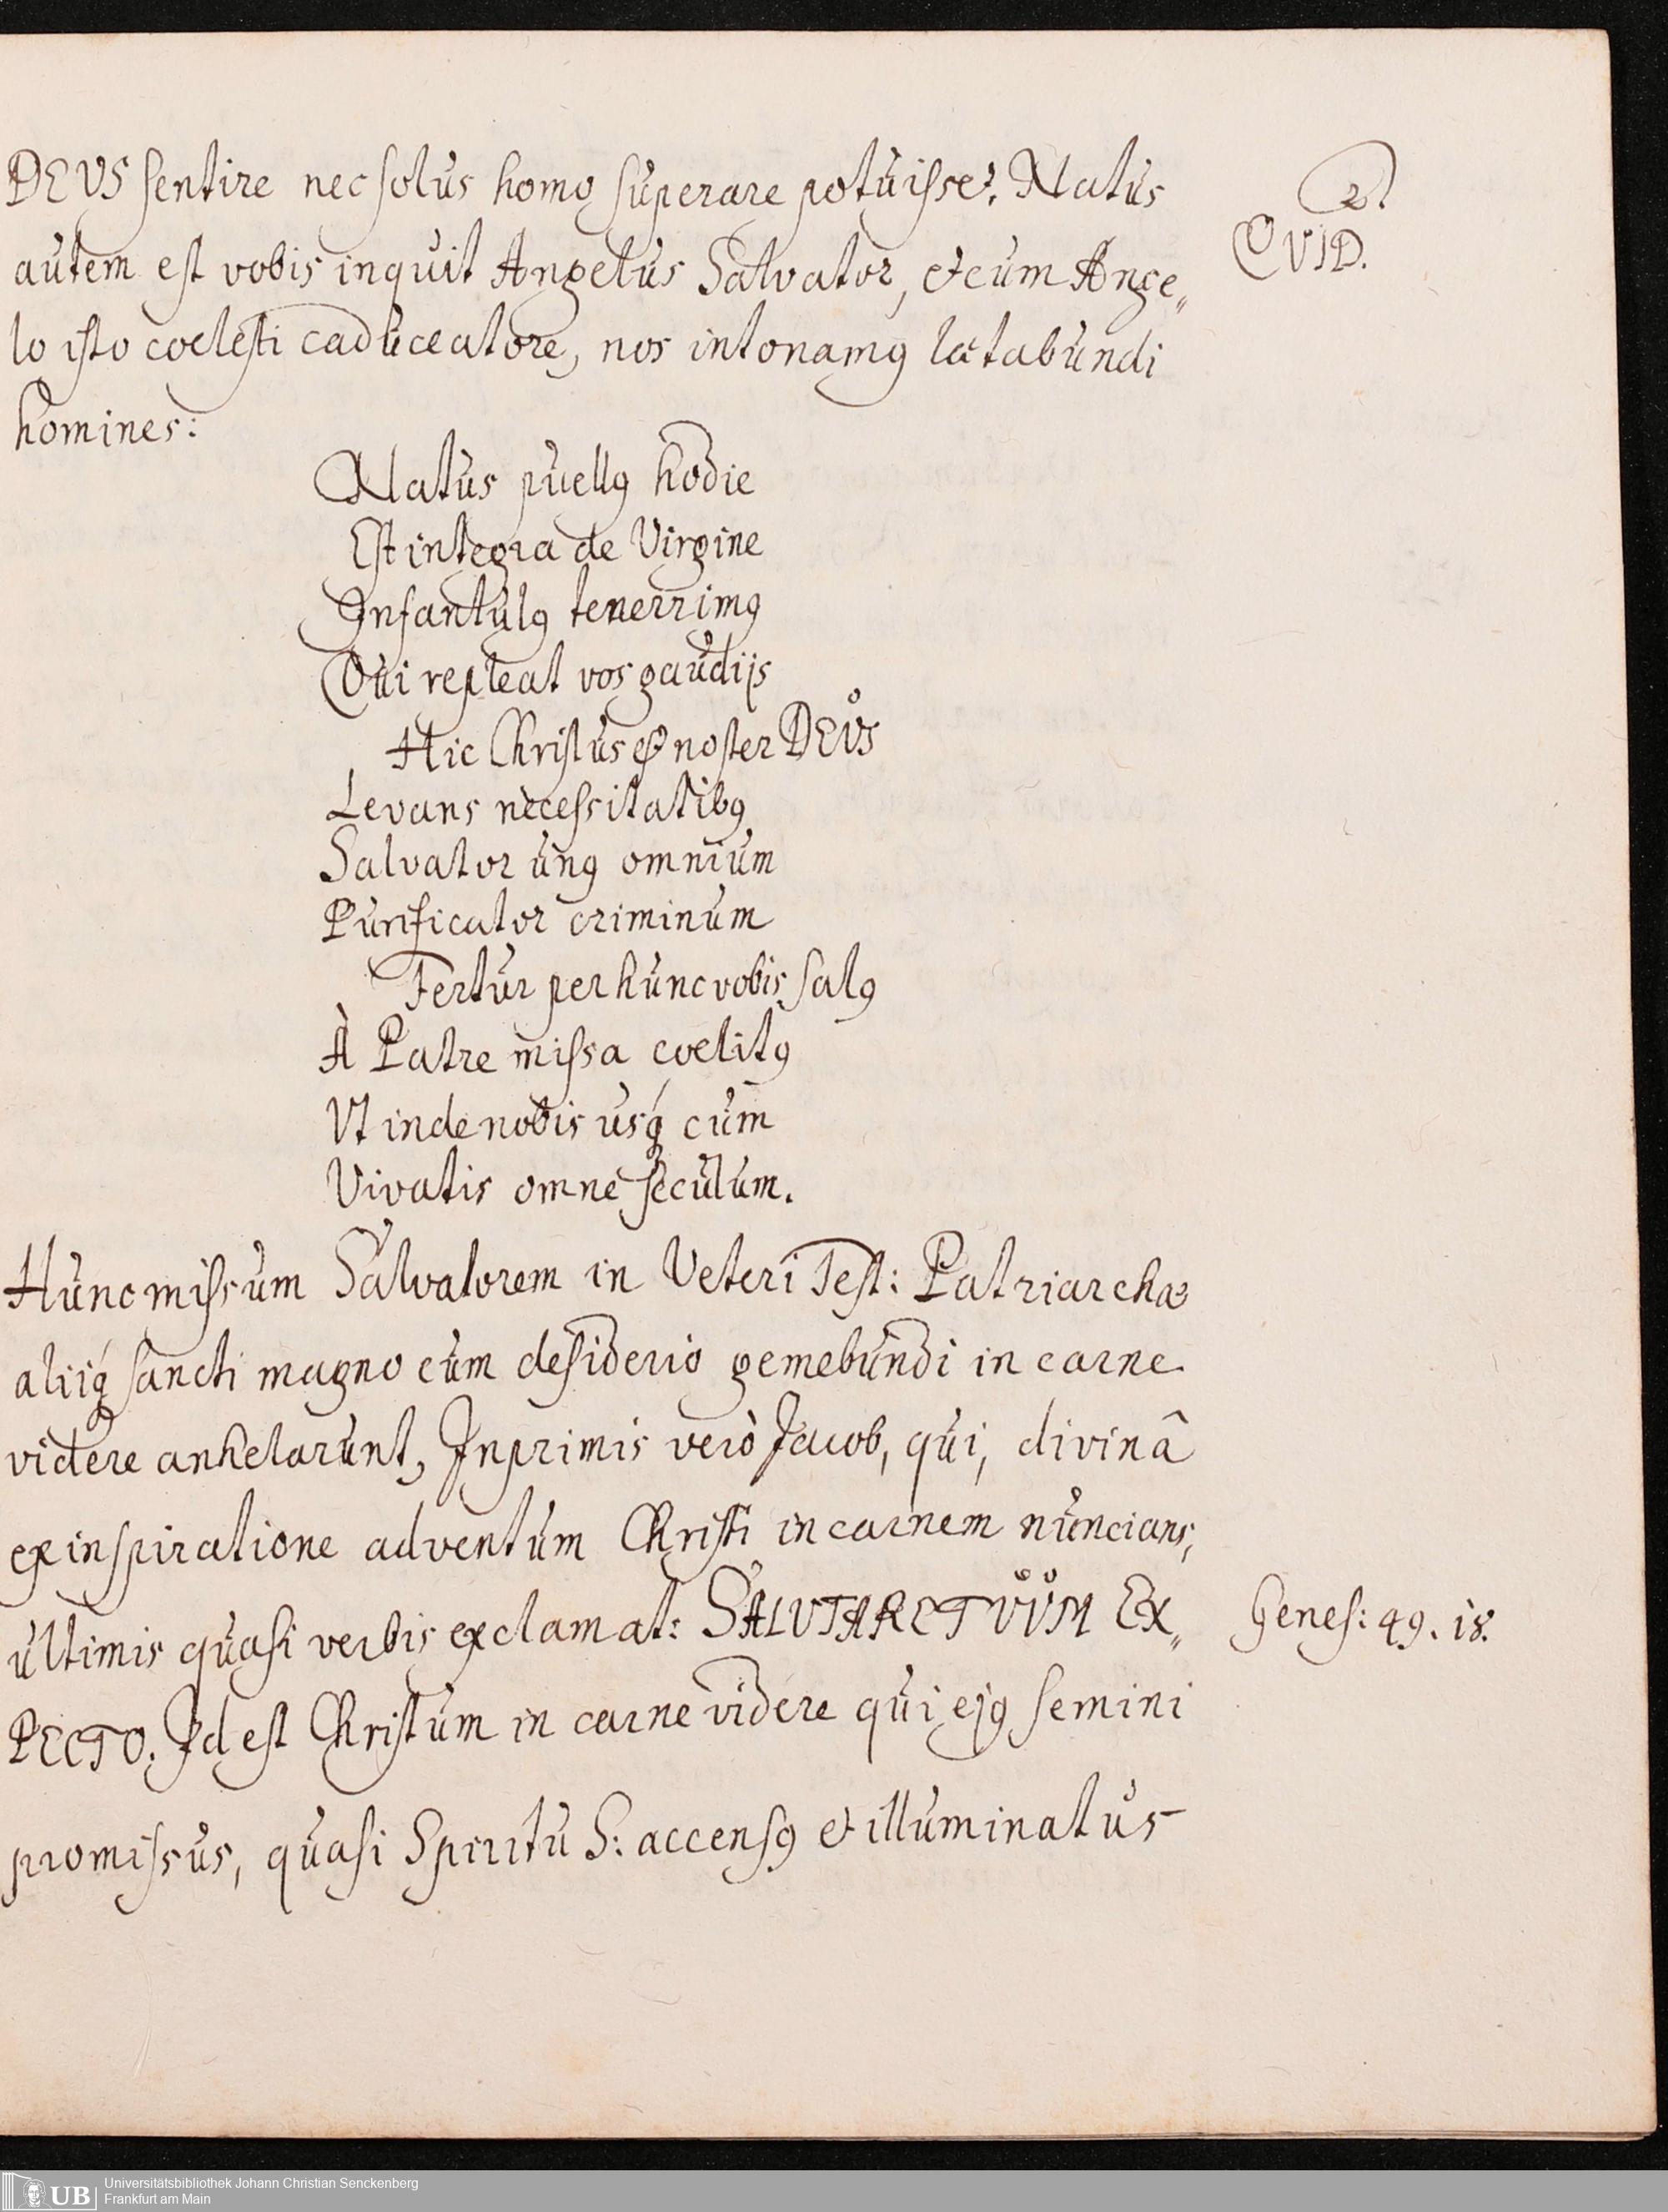 DEUS sentire nec solus homo superare potuisset. Natus
autem est vobis inquit Angelus Salvator, et cum Ange„
lo isto coelesti caduceatore, nos intonamꝰ lætabundi
homines:
2.
QVID.
Natus puellꝰ hodie
Est integra de Virgine
Infantulꝰ tenerrimꝰ
Qui repleat vos gaudijs
Hic Christus est noster DEUS
Levans necessitatibꝰ
Salvator unꝰ omnium
Purificator criminum
Fertur per hunc vobis salꝰ
À Patre missa coelitꝰ
Vt inde nobis usq́ cum
Vivatis omne seculum.
Hunc missum Salvatorem in Veteri Test: Patriarchæ
aliiq́ sancti magno cum desiderio gemebundi in carne
videre anhelarunt, Inprimis verò Jacob, qui, divinâ
ex inspiratione adventum Christi in carnem nuncians,
ultimis quasi verbis exclamat: SALUTARE TUUM EX„
PECTO. Id est Christum in carne videre qui ejꝰ semini
promissus, quasi Spiritu S: accensꝰ et illuminatus
Genes: 49. 18.
UB
Universitätsbibliothek Johann Christian Senckenberg
Frankfurt am Main